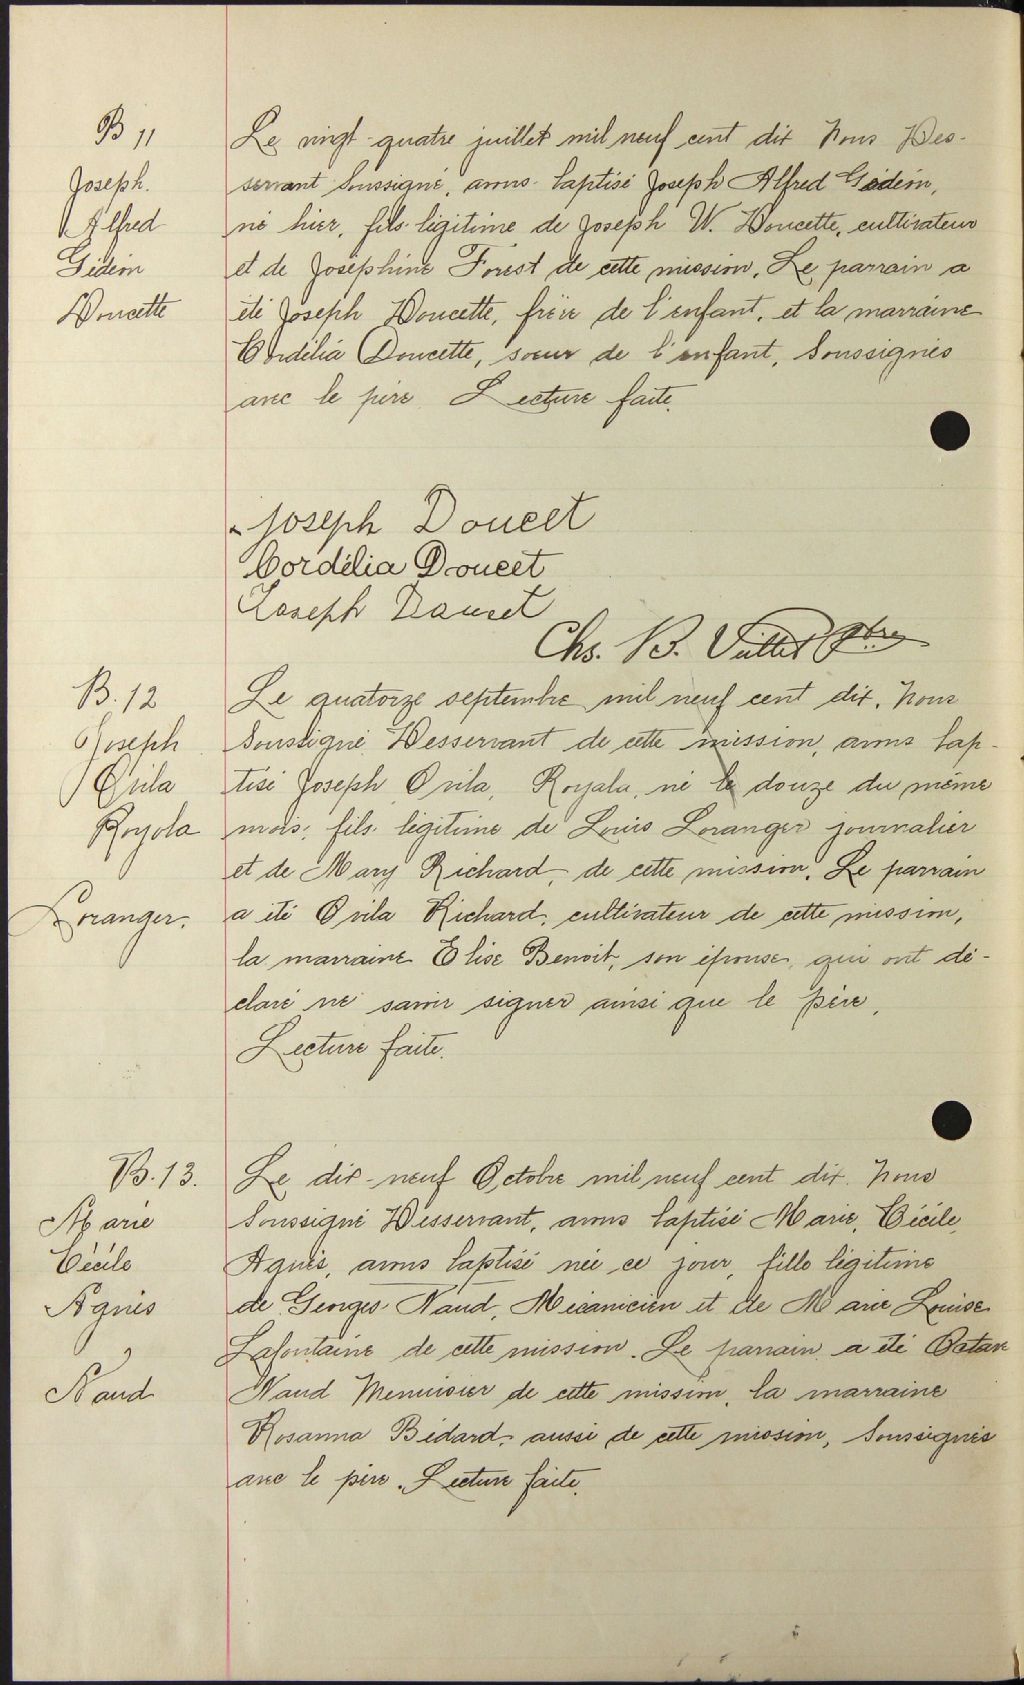 B 11
Joseph.
Alfred
Gédéon
Doucette
Le vingt-quatre juillet mil neuf cent dix Nous Des-
servant soussigné, avons baptisé Joseph Alfred Gédéon,
né hier, fils légitime de Joseph W. Doucette, cultivateur
et de Joséphine Forest de cette mission. Le parrain a
été Joseph Doucette, frère de l'enfant, et la marraine
Cordélia Doucette, soeur de l'enfant, soussignés
avec le père Lecture faite.
Joseph Doucet
Cordélia Doucet
Joseph Doucet
Chs. B. Ptre
B. 12
Joseph
Ovila
Royola
Loranger.
Le quatorze septembre mil neuf cent dix, Nous
soussigné Desservant de cette mission, avons bap-
tisé Joseph Ovila, Royala, né le douze du même
mois, fils légitime de Louis Loranger journalier
et de Mary Richard, de cette mission. Le parrain
a été Ovila Richard, cultivateur de cette mission,
la marraine Elise Benoit, son épouse, qui ont dé-
claré ne savoir signer ainsi que le père.
Lecture faite.
B. 13.
Marie
Cécile
Agnès
Naud
Le dix-neuf Octobre mil neuf cent dix. Nous
soussigné Desservant, avons baptisé Marie, Cécile,
Agnès, avons baptisé née ce jour, fille légitime
de Georges Naud, Mécanicien et de Marie Louise
Lafontaine de cette mission. Le parrain a été Octave
Naud Menuisier de cette mission, la marraine
Rosanna Bédard, aussi de cette mission, soussignés
avec le père. Lecture faite.